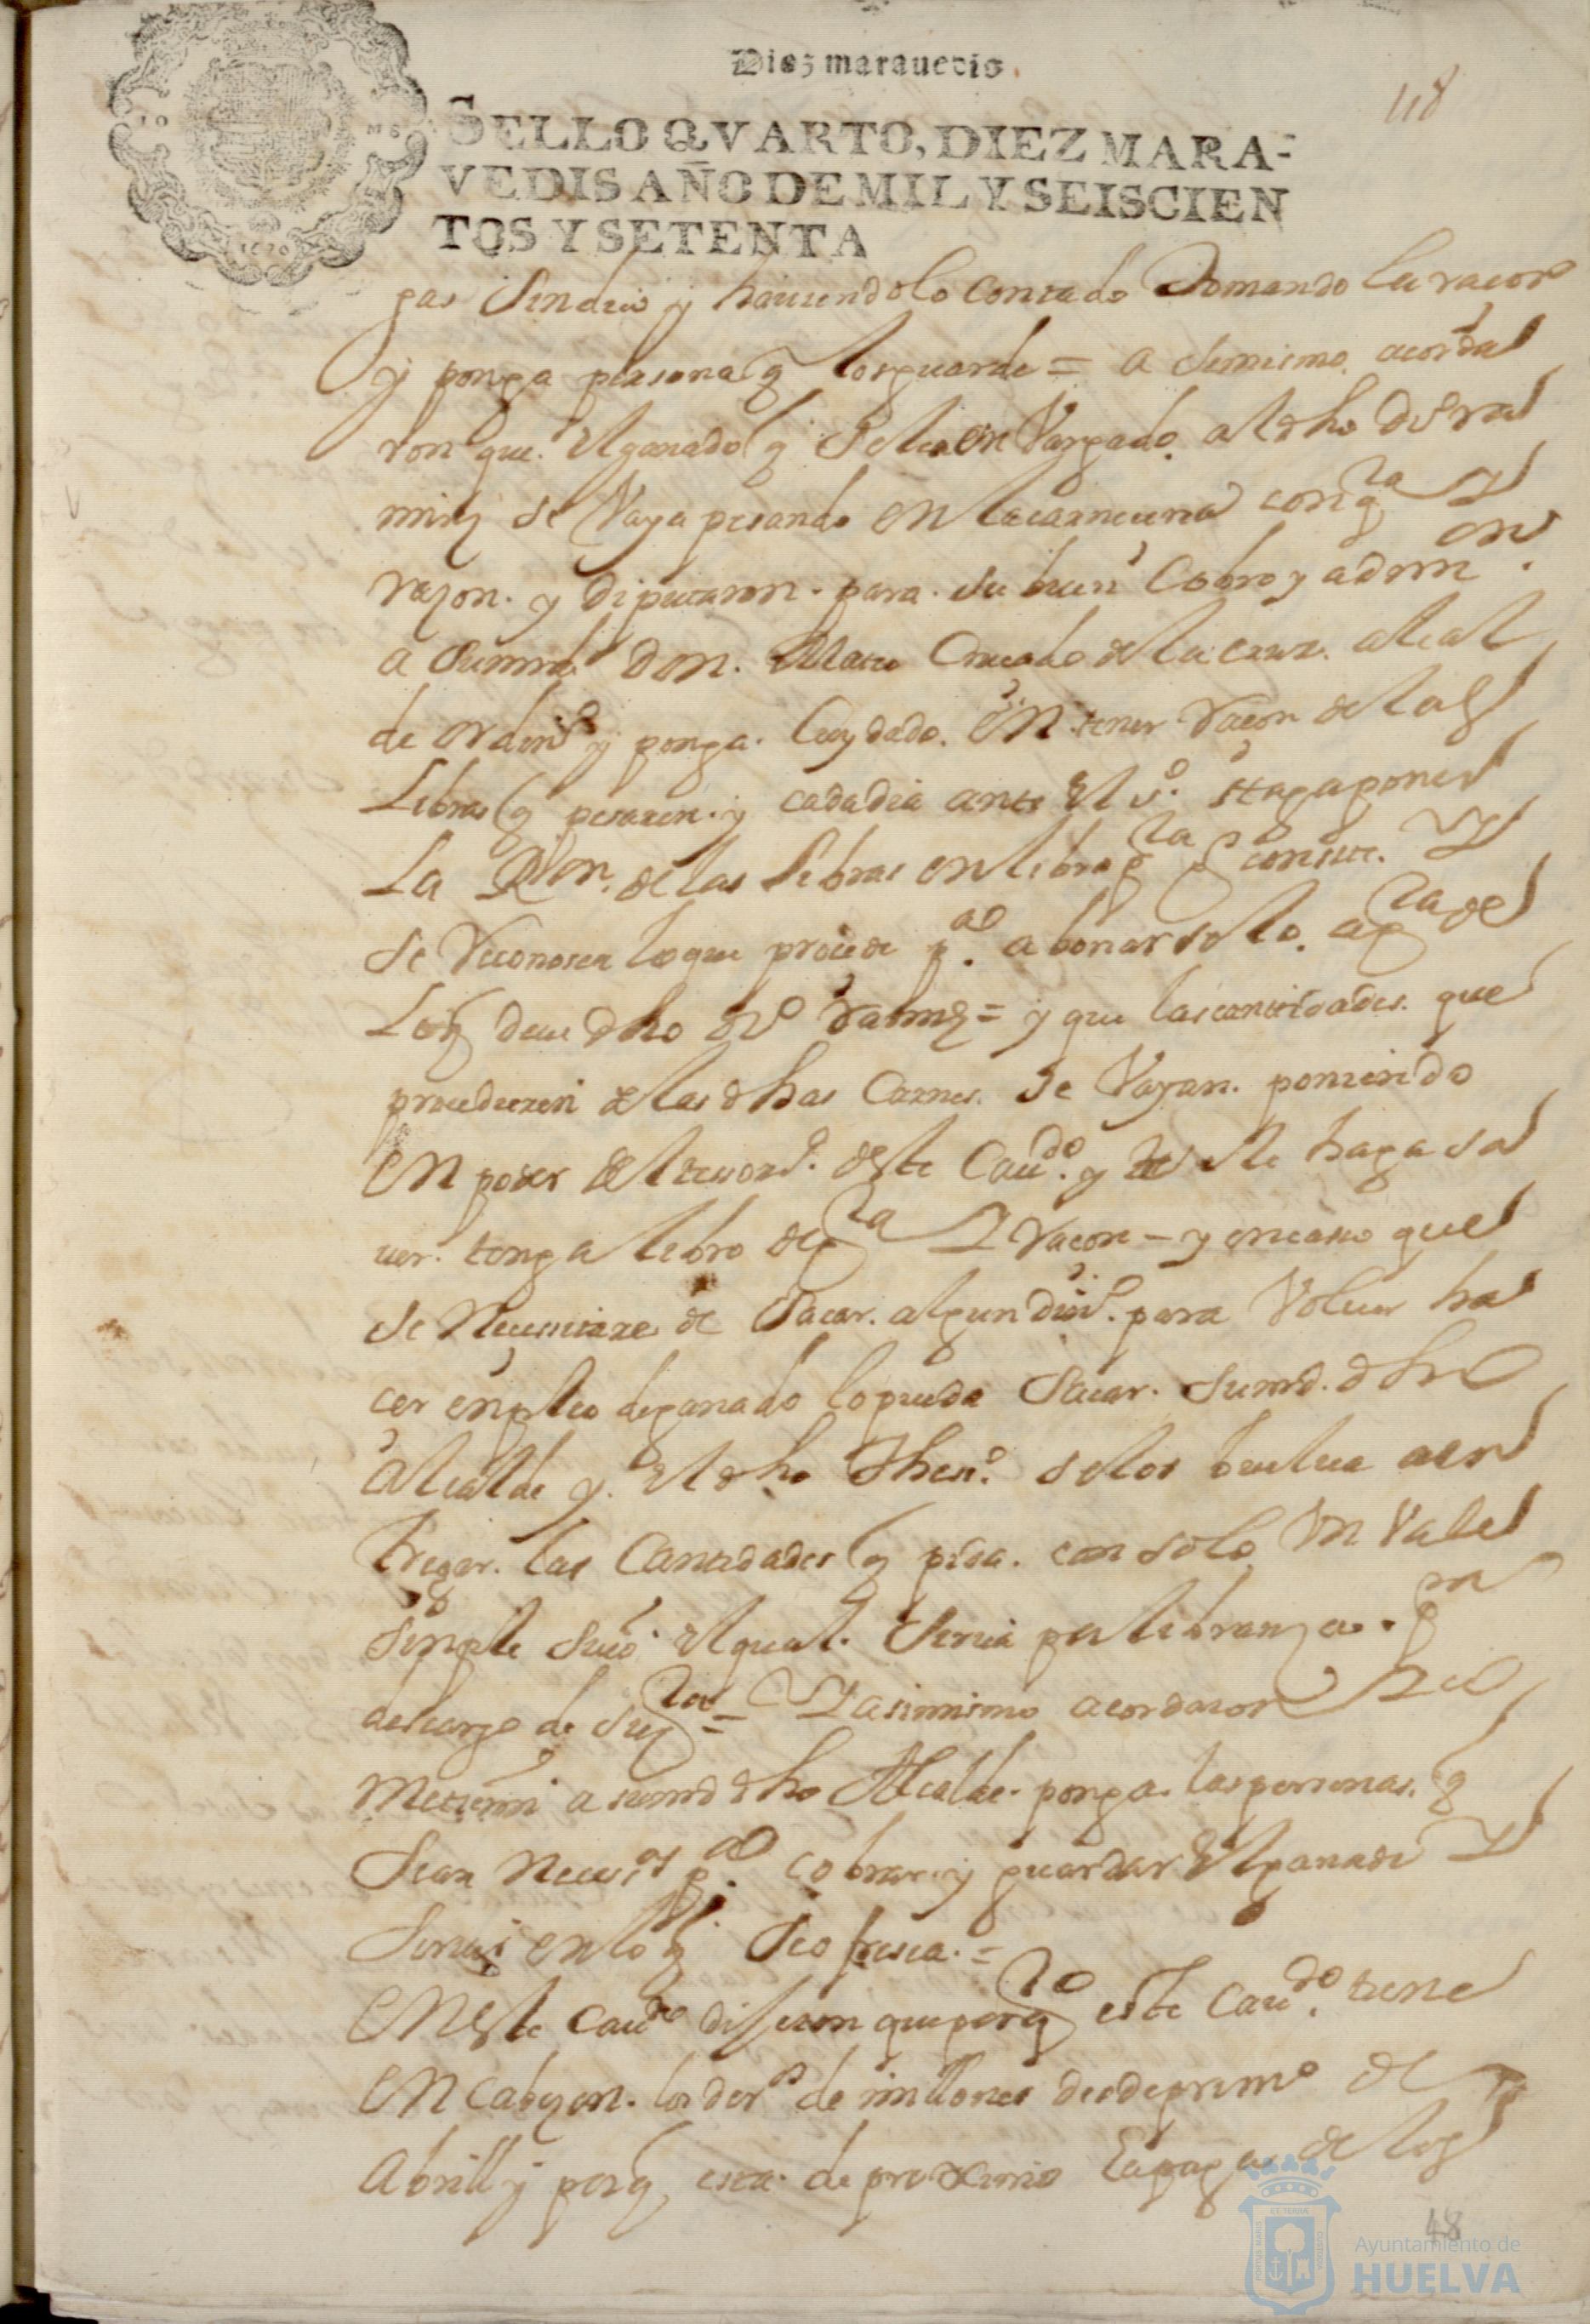 Diez maravedis.
118
SELLO QVARTO, DIEZ MARA-
VEDIS AÑO DE MIL Y SEISCIEN
TOS Y SETENTA
1670
gas sindico y hauiendolo contado tomando la racon
y ponga persona q los guarde = a simismo acorda
ron que el ganado q se
mirz se Vaya pesando en la carneceria con q.ta y
razon. y diputaron. para. su buen Cobro y admin.on
a sumrd don. Mateo de la cruz. alcal
de ordin.o y ponga. Cuydado. en tener racon de las
Libras q pesaren. y cada dia ante el s.o
La Rlon. de las libras en libro q.ta q conste. y
se Reconosca lo que procede p.a abonarselo. a q.ta de
Lo q deue dho = y que las cantidades. que
procedieren de las dhas Carnes. se Vayan. poniendo
en poder del thesor.o deste Cau.do y se le haga sa
uer. tenga libro de q.ta y racon - y en caso que
se Necesitare de Sacar. algun din.o para Voluer ha
cer enpleo de ganado lo pueda Sacar. sumrd. dho
Alcalde y el dho thes.o
tregar. las Cantidades q pida. con solo Vn Vale
simple suio. el qual. Sirua por libranza. p.a
descargo de su q.ta = Y asimismo acordaron
Metieron a sumrd dho Alcalde. ponga. las personas. q
Sean Neces.as p.a cobrar. y guardar el ganado y
Siruan en lo q Se ofresca. =
En este cau.do dijeron que por q.to este Cau.do tiene
en Cabezon. los der.os de millones desde prim.o de
Abrill y porq esta. de proximo la paga de los
48
Ayuntamiento de
HUELVA